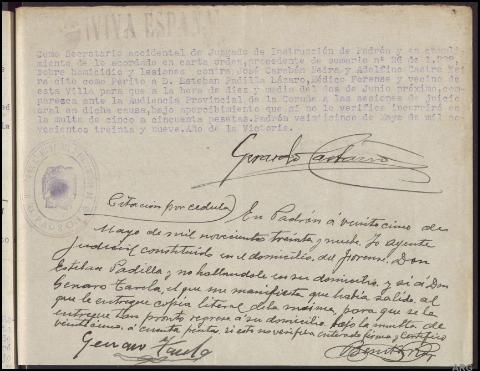 ¡VIVA ESPAÑA
Como Secretario accidental de Juzgado de Instrucción de Padrón y en cumpli-
miento de lo acordado en carta orden, procedente de sumario nº 26 de
sobre homicidio y lesiones contra José Carabán Neira y Adolfino Castro Nei-
ra cito como Perito a D. Esteban Padilla Lázaro, Médico Forense y vecino de
esta Villa para que a la hora de diez y medio del dos de Junio próximo, com-
parezca ante la Audiencia Provincial de la Coruña a las sesiones de juicio
oral en dicha causa, bajo apercibimiento que si no lo verifica incurrirá en
la multa de cinco a cincuenta pesetas. Padrón veinticinco de Mayo de mil no-
vecientos treinta y nueve. Año de la Victoria.
Gerardo
Citación por cedula) En Padrón á veinticinco de
Mayo de mil novecientos treinta y nueve. Yo agente
judicial constituido en el domicilio del Forense Don
Esteban Padilla y no hallandole en su domicilio y si á Don
Genaro el que me manifiesta que habia salido al
que le entregue copia literal de la misma, para que se la
entregue tan pronto regrese a su domicilio bajo la multa de
cinco á cincuenta pesetas si esto no verifica enterado firma y certifico
Genaro
ARG